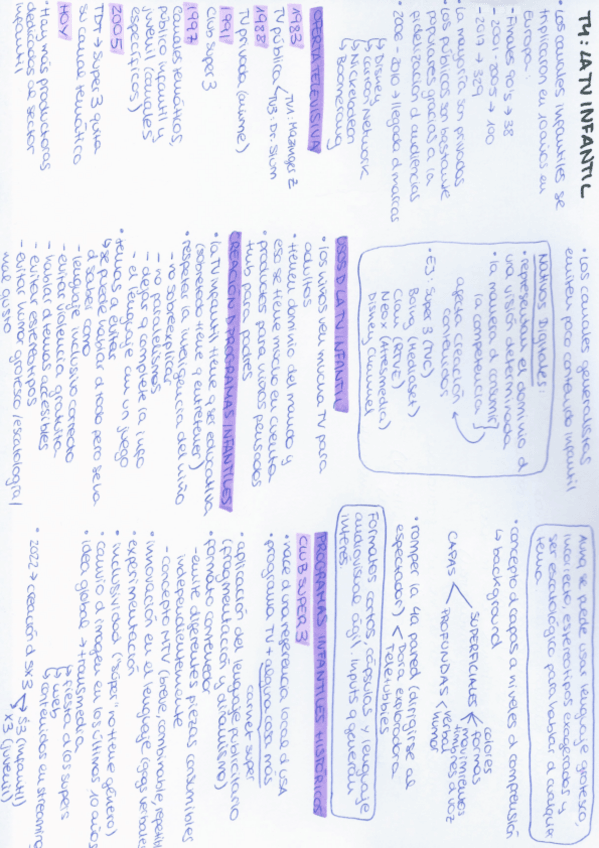 T4: LA TV INFANTIL
• Los canales infantiles se
triplicaron en 10 años en
Europa:
- Finales 90's → 38
- 2001-2005 → 190
- 2017 → 329
• La mayoría son privados
• Los públicos son bastante
populares gracias a la
fidelización d audiencias
• 2008-2010 → llegada d marcas
↳ Disney
↳ Cartoon Network
↳ Nickelodeon
↳ Boomerang
OFERTA TELEVISIVA
1983
TV pública < TV1: Mazinger Z
TV3: Dr. Slum
1988
TV privada (anime)
1991
Club super 3
1997
Canales temáticos,
público infantil y
juvenil (canales
específicos)
2005
TDT → Super 3 gana
su canal temático
HOY
• Hay más productoras
dedicadas al sector
infantil
• Los canales generalistas
emiten poco contenido infantil
Nativos Digitales:
• representan el dominio d
una visión determinada
• la manera d consumir
la competencia
afecta creación
contenidos
• Ej: Super 3 (TVC)
Boing (Mediaset)
Clan (RTVE)
Neox (Atresmedia)
Disney Channel
USOS D LA TV INFANTIL
• los niños ven mucha TV para
adultos
• tienen dominio del mando y
eso se tiene mucho en cuenta
• productos para niños pensados
tmb para padres
CREACIÓN D PROGRAMAS INFANTILES
• la TV infantil tiene q ser educativa
(sobretodo tiene q entretener)
• respetar la inteligencia del niño
- no sobreexplicar
- no paralelismos
- dejar q complete la info
- el lenguaje como un juego
• temas a evitar
↳ se puede hablar d todo pero se ha
d saber como
- lenguaje inclusivo correcto
- evitar violencia gratuita
- hablar d temas accesibles
- evitar estereotipos
- evitar humor grotesco /escatología/
mal gusto
Aunq se puede usar lenguaje grotesco,
incorrecto, estereotipos exagerados y
ser escatológico para hablar d cualquier
tema
• concepto d capas o niveles d comprensión
↳ background
CAPAS < SUPERFICIALES < colores
formas
movimientos
timbres d voz
PROFUNDAS < verbal
humor
• romper la 4a pared (dirigirse al
espectador) < Dora exploradora
Teletubbies
Formatos cortos, cápsulas y lenguaje
audiovisual ágil, inputs q generan
interés
PROGRAMAS INFANTILES HISTÓRICOS
CLUB SUPER 3
• nace d una referencia local d USA
• programa TV + alguna cosa más
carnet super
• aplicación del lenguaje publicitario
(fragmentación y dinamismo)
• formato contenedor
- emite diferentes piezas consumibles
independientemente
- concepto MTV (breve, combinable, repetible
• innovación en el lenguaje (gags verbales
• experimentación
• inclusividad ("súper" no tiene género)
• cambio d imagen en los últimos 10 años
• idea global → transmedia
↳ fiesta d los supers
↳ web
↳ contenidos en streaming
• 2022 → creación d SX3 < S3 (infantil)
X3 (juvenil)